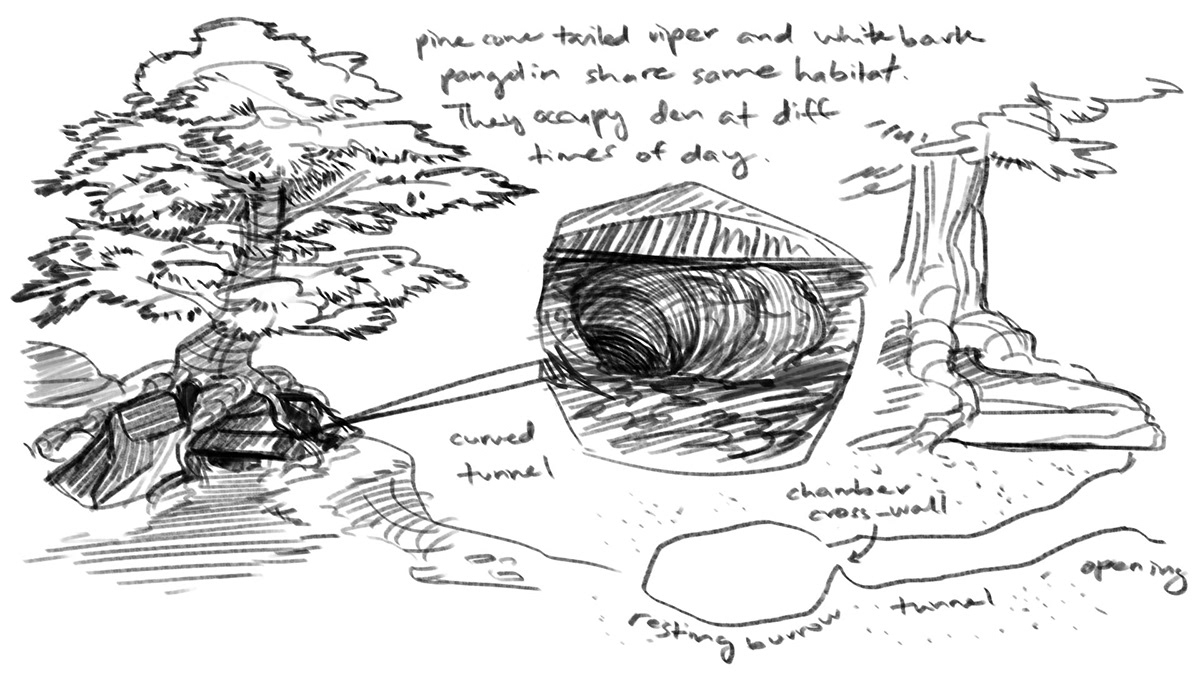 pine cone tailed viper and whitebark
pangolin share same habitat.
They occupy den at diff
times of day.
curved
tunnel
chamber
cross-wall
opening
tunnel
resting burrow